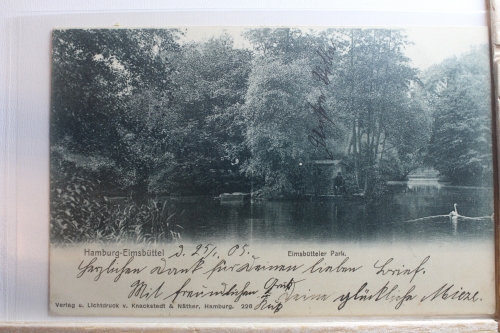 Hamburg-Eimsbüttel d. 25/1. 05.
Eimsbütteler Park.
Herzlichen Dank für Deinen lieben Brief.
Mit freundlichen Gruß
Kuß Deine glückliche Mieze.
Verlag u. Lichtdruck v. Knackstedt & Näther, Hamburg. 228